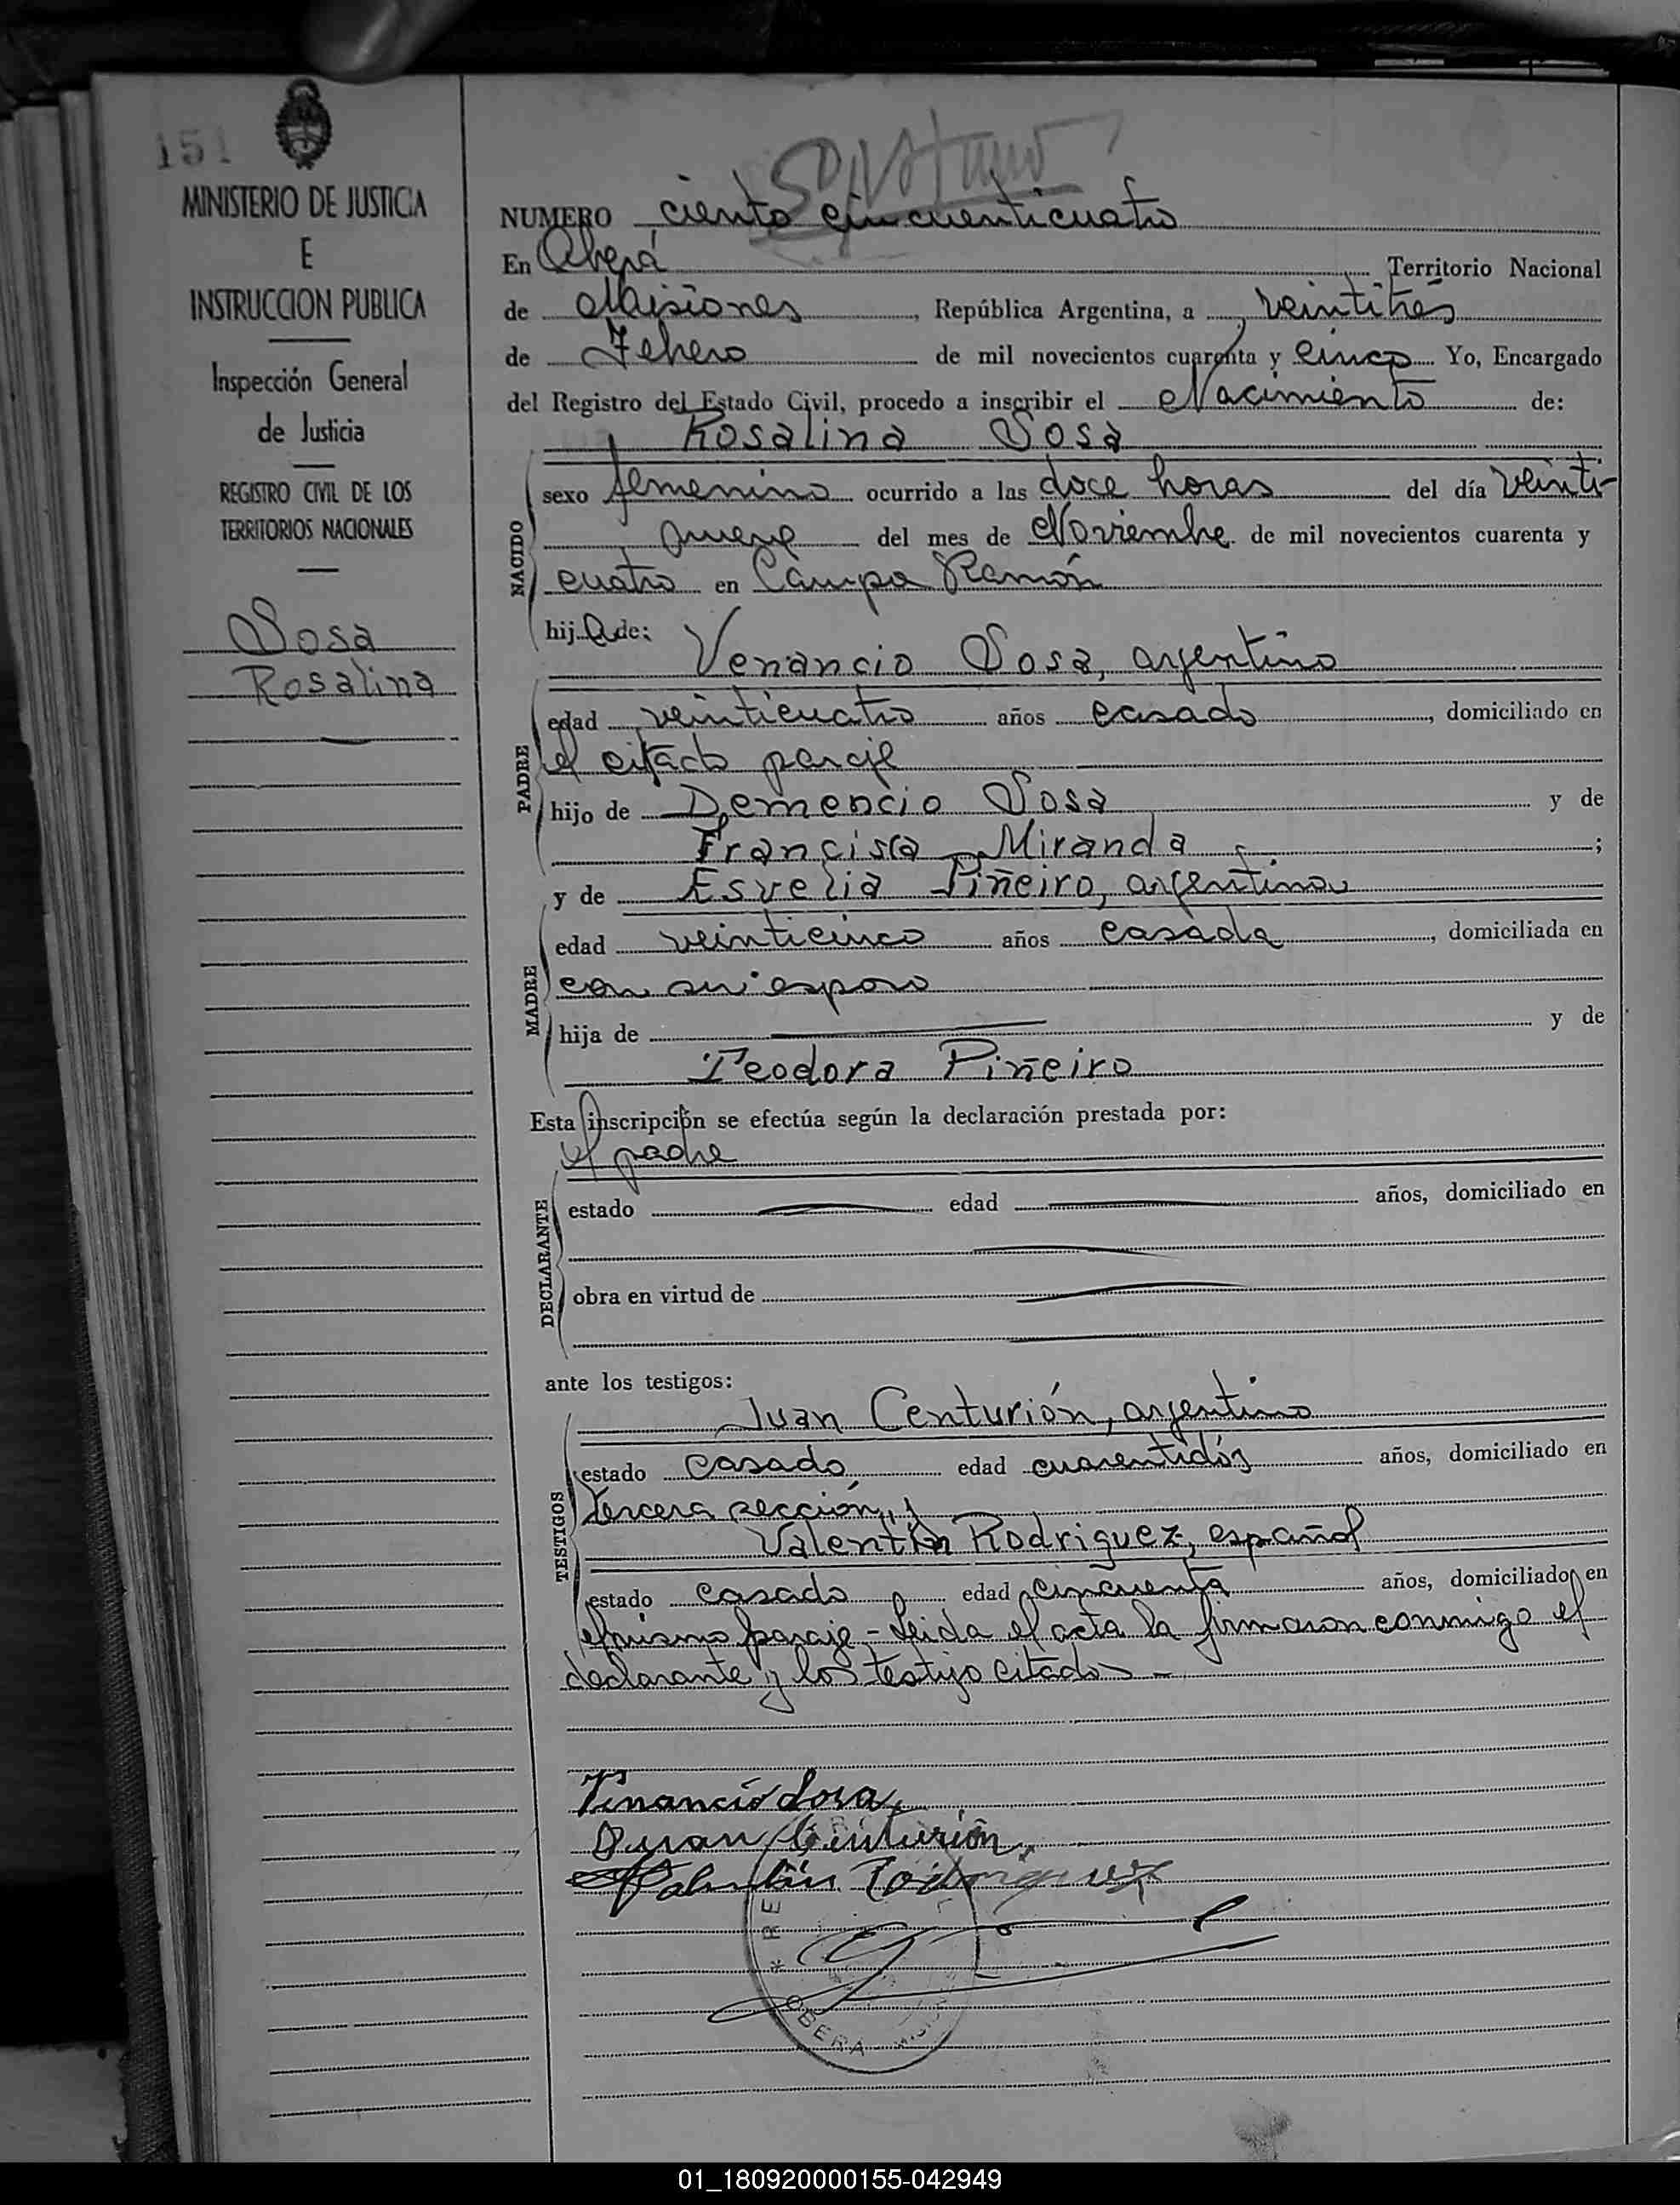 151
MINISTERIO DE JUSTICIA
E
INSTRUCCION PUBLICA
Inspección General
de Justicia
REGISTRO CIVIL DE LOS
TERRITORIOS NACIONALES
Sosa
Rosalina
NUMERO ciento cincuenticuatro
En Oberá Territorio Nacional
de Misiones, República Argentina, a veintitrés
de Febrero de mil novecientos cuarenta y cinco Yo, Encargado
del Registro del Estado Civil, procedo a inscribir el Nacimiento de:
Rosalina Sosa
NACIDO
sexo femenino ocurrido a las doce horas del día veinti-
nueve del mes de Noviembre de mil novecientos cuarenta y
cuatro en Campo Ramón
hija de:
Venancio Sosa, argentino
PADRE
edad veinticuatro años casado, domiciliado en
el citado paraje
hijo de Demencio Sosa y de
Francisca Miranda ;
y de Esvelia Piñeiro, argentina
MADRE
edad veinticinco años casada, domiciliada en
con su esposo
hija de y de
Teodora Piñeiro
Esta inscripción se efectúa según la declaración prestada por:
el padre
DECLARANTE
estado edad años, domiciliado en
obra en virtud de
ante los testigos:
Juan Centurión, argentino
TESTIGOS
estado casado edad cuarentidós años, domiciliado en
tercera sección, y
Valentín Rodriguez, español
estado casado edad cincuenta años, domiciliado en
el mismo paraje - Leida el acta la firmaron conmigo el
declarante y los testigo citados -
Venancio Sosa
Juan Centurión
Valentín Rodriguez
OBERA
01_180920000155-042949